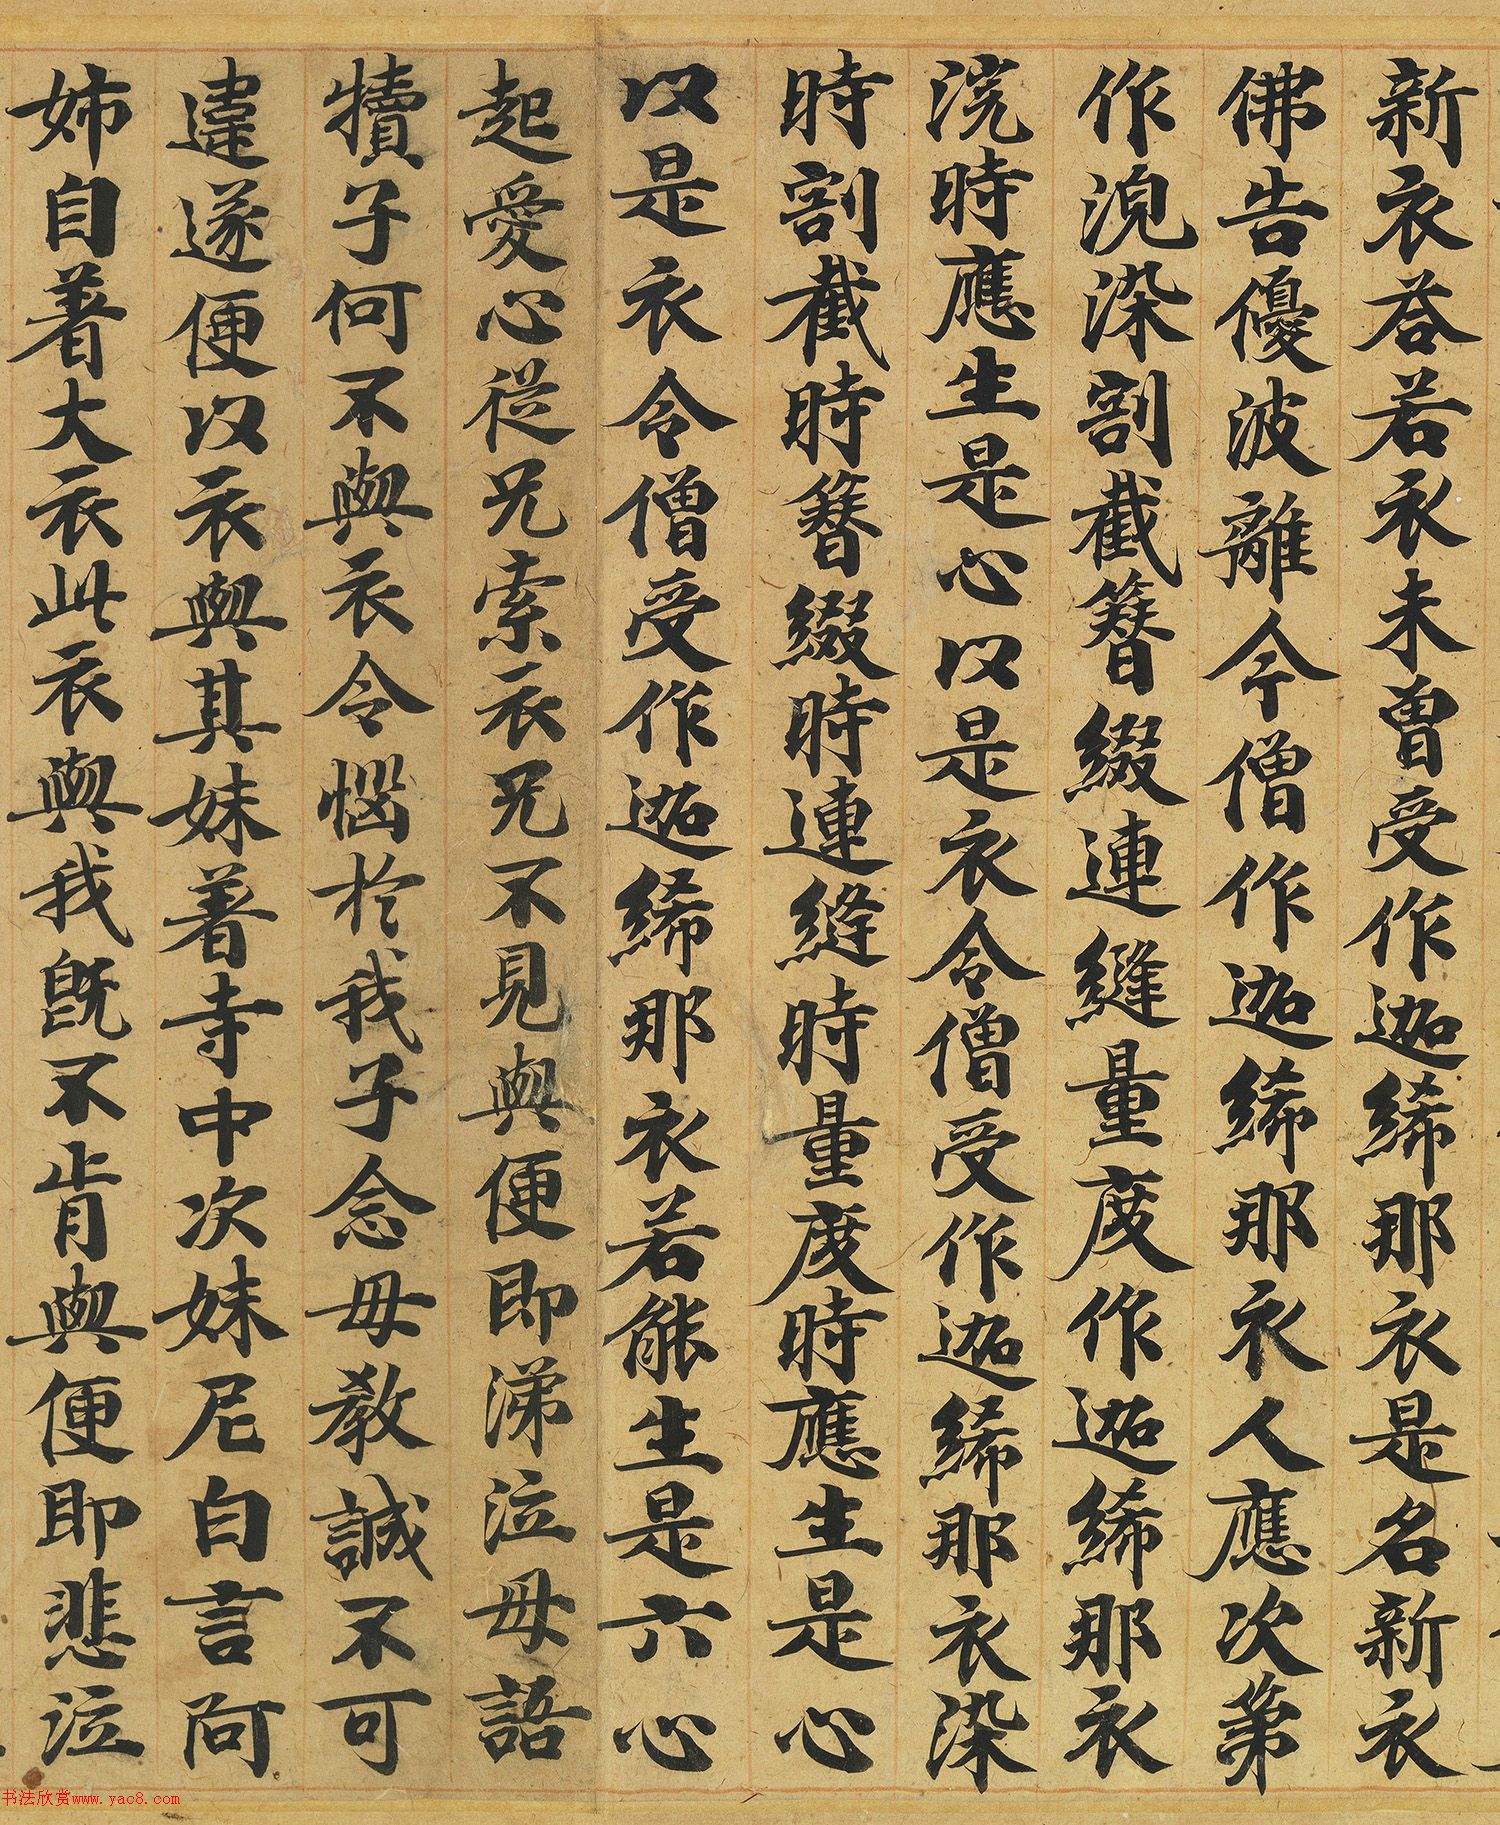 新衣荅若衣未曾受作迦絺那衣是名新衣
佛告優波離今僧作迦絺那衣人應次第
作浣染割截簪綴連縫量度作迦絺那衣
浣時應生是心以是衣令僧受作迦絺那衣染
時割截時簪綴時連縫時量度時應生是心
以是衣令僧受作迦絺那衣若能生是六心
起愛心從兄索衣兄不見與便即涕泣母語
犢子何不與衣令惱於我子念母教誠不可
違遂便以衣與其妹著寺中次妹尼白言阿
姉自著大衣此衣與我既不肯與便即悲泣
书法欣赏www.yac8.com